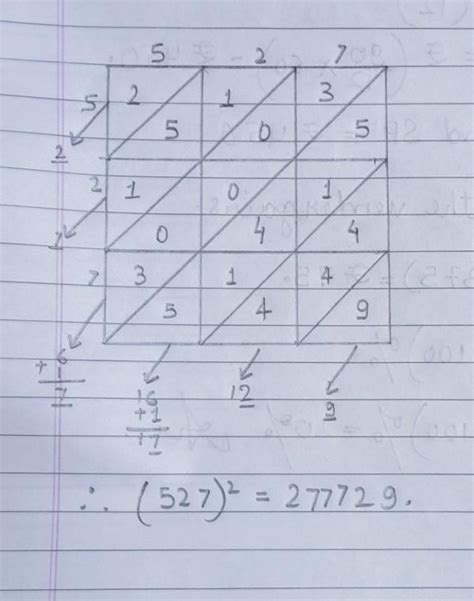 5 2 7
5 2 1 3
5 0 5
2
2 1 0 1
7 0 4 4
7 3 1 4
5 4 9
6 16 12 9
+ 1 +1
7 17
∴ (527)² = 277729.